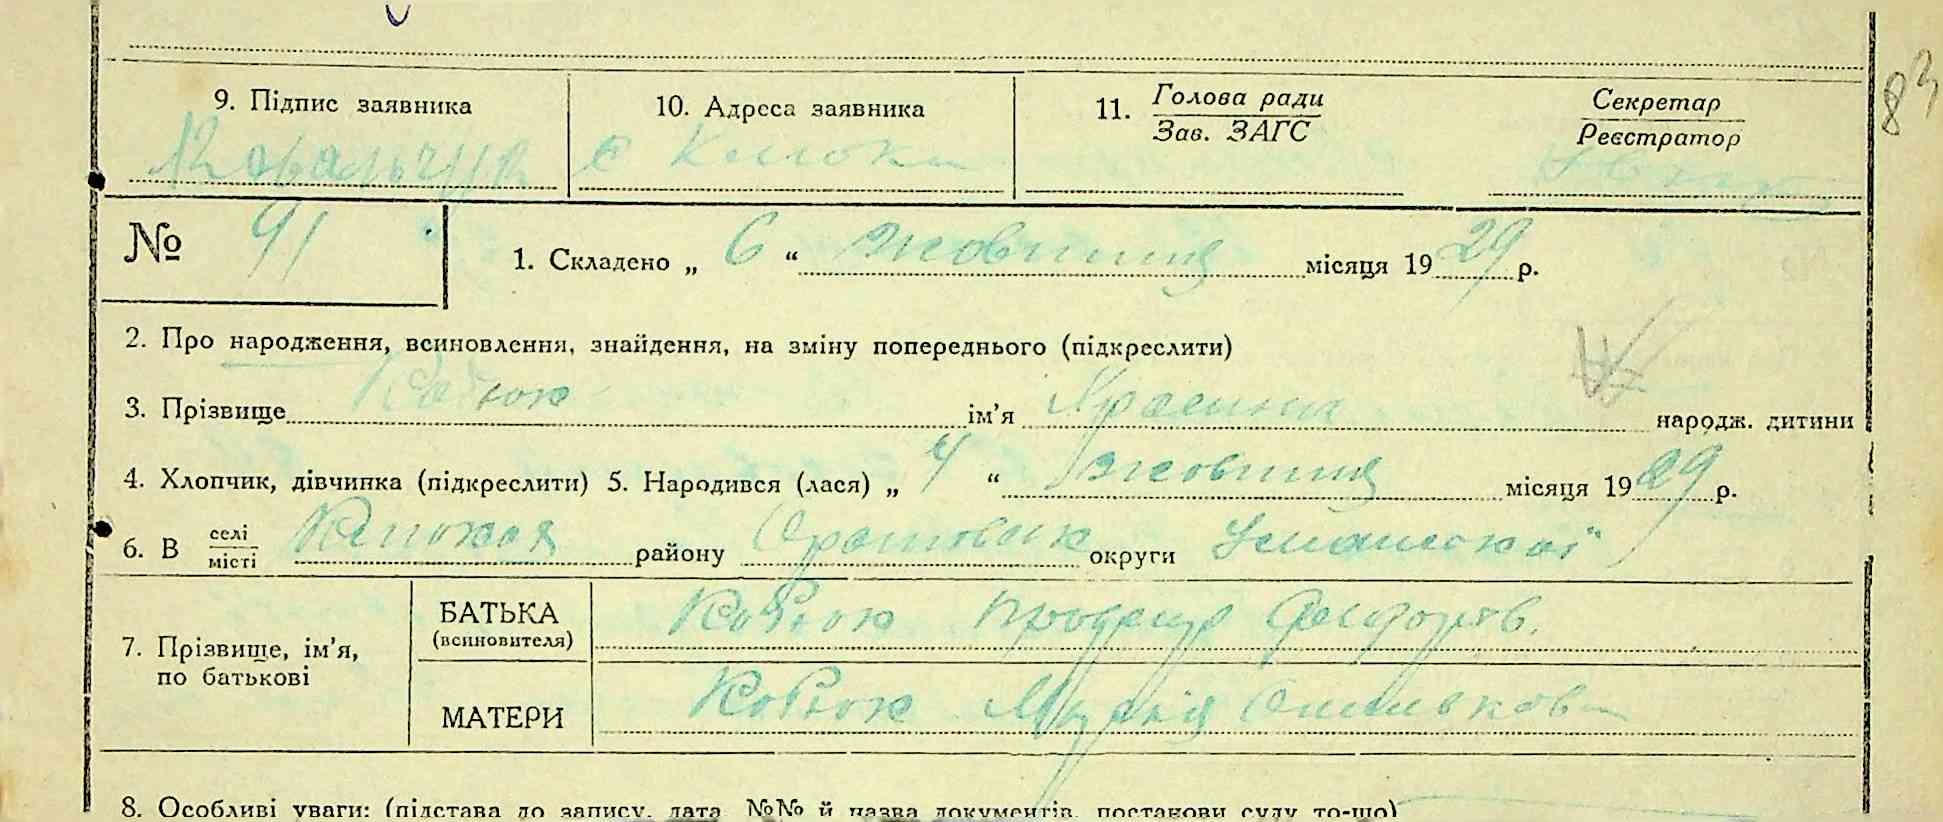 83
9. Підпис заявника 10. Адреса заявника 11. Голова ради Секретар
Зав. ЗАГС Реєстратор
Ковальчук с
№ 91
1. Складено „ 6 “ жовтня місяця 1929 р.
2. Про народження, всиновлення, знайдення, на зміну попереднього (підкреслити)
3. Прізвище Кобюк ім'я народж. дитини
4. Хлопчик, дівчинка (підкреслити) 5. Народився (лася) „ 4 “ жовтня місяця 1929 р.
6. В селі району округи Уманської
місті
7. Прізвище, ім'я, по батькові
БАТЬКА Кобюк Федоров.
(всиновителя)
МАТЕРИ Кобюк Марія
8. Особливі уваги: (підстава до запису, дата, №№ й назва документів, постанови суду то-що)